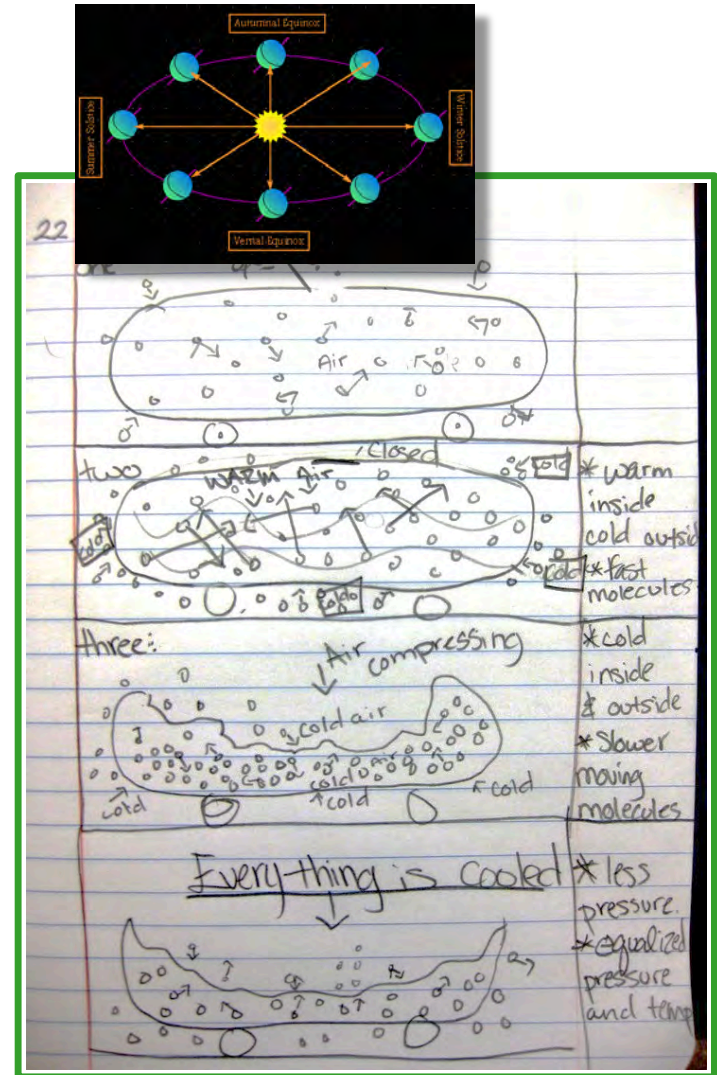 Autumnal Equinox
Summer Solstice
Winter Solstice
Vernal Equinox
22
one
Air
two
closed
warm Air
cold
cold
cold
cold
* warm
inside
cold outside
* fast
molecules
three:
Air
compressing
cold air
cold air
cold
cold
cold
* cold
inside
& outside
* Slower
moving
molecules
Everything is cooled
* less
pressure.
* equalized
pressure
and temp